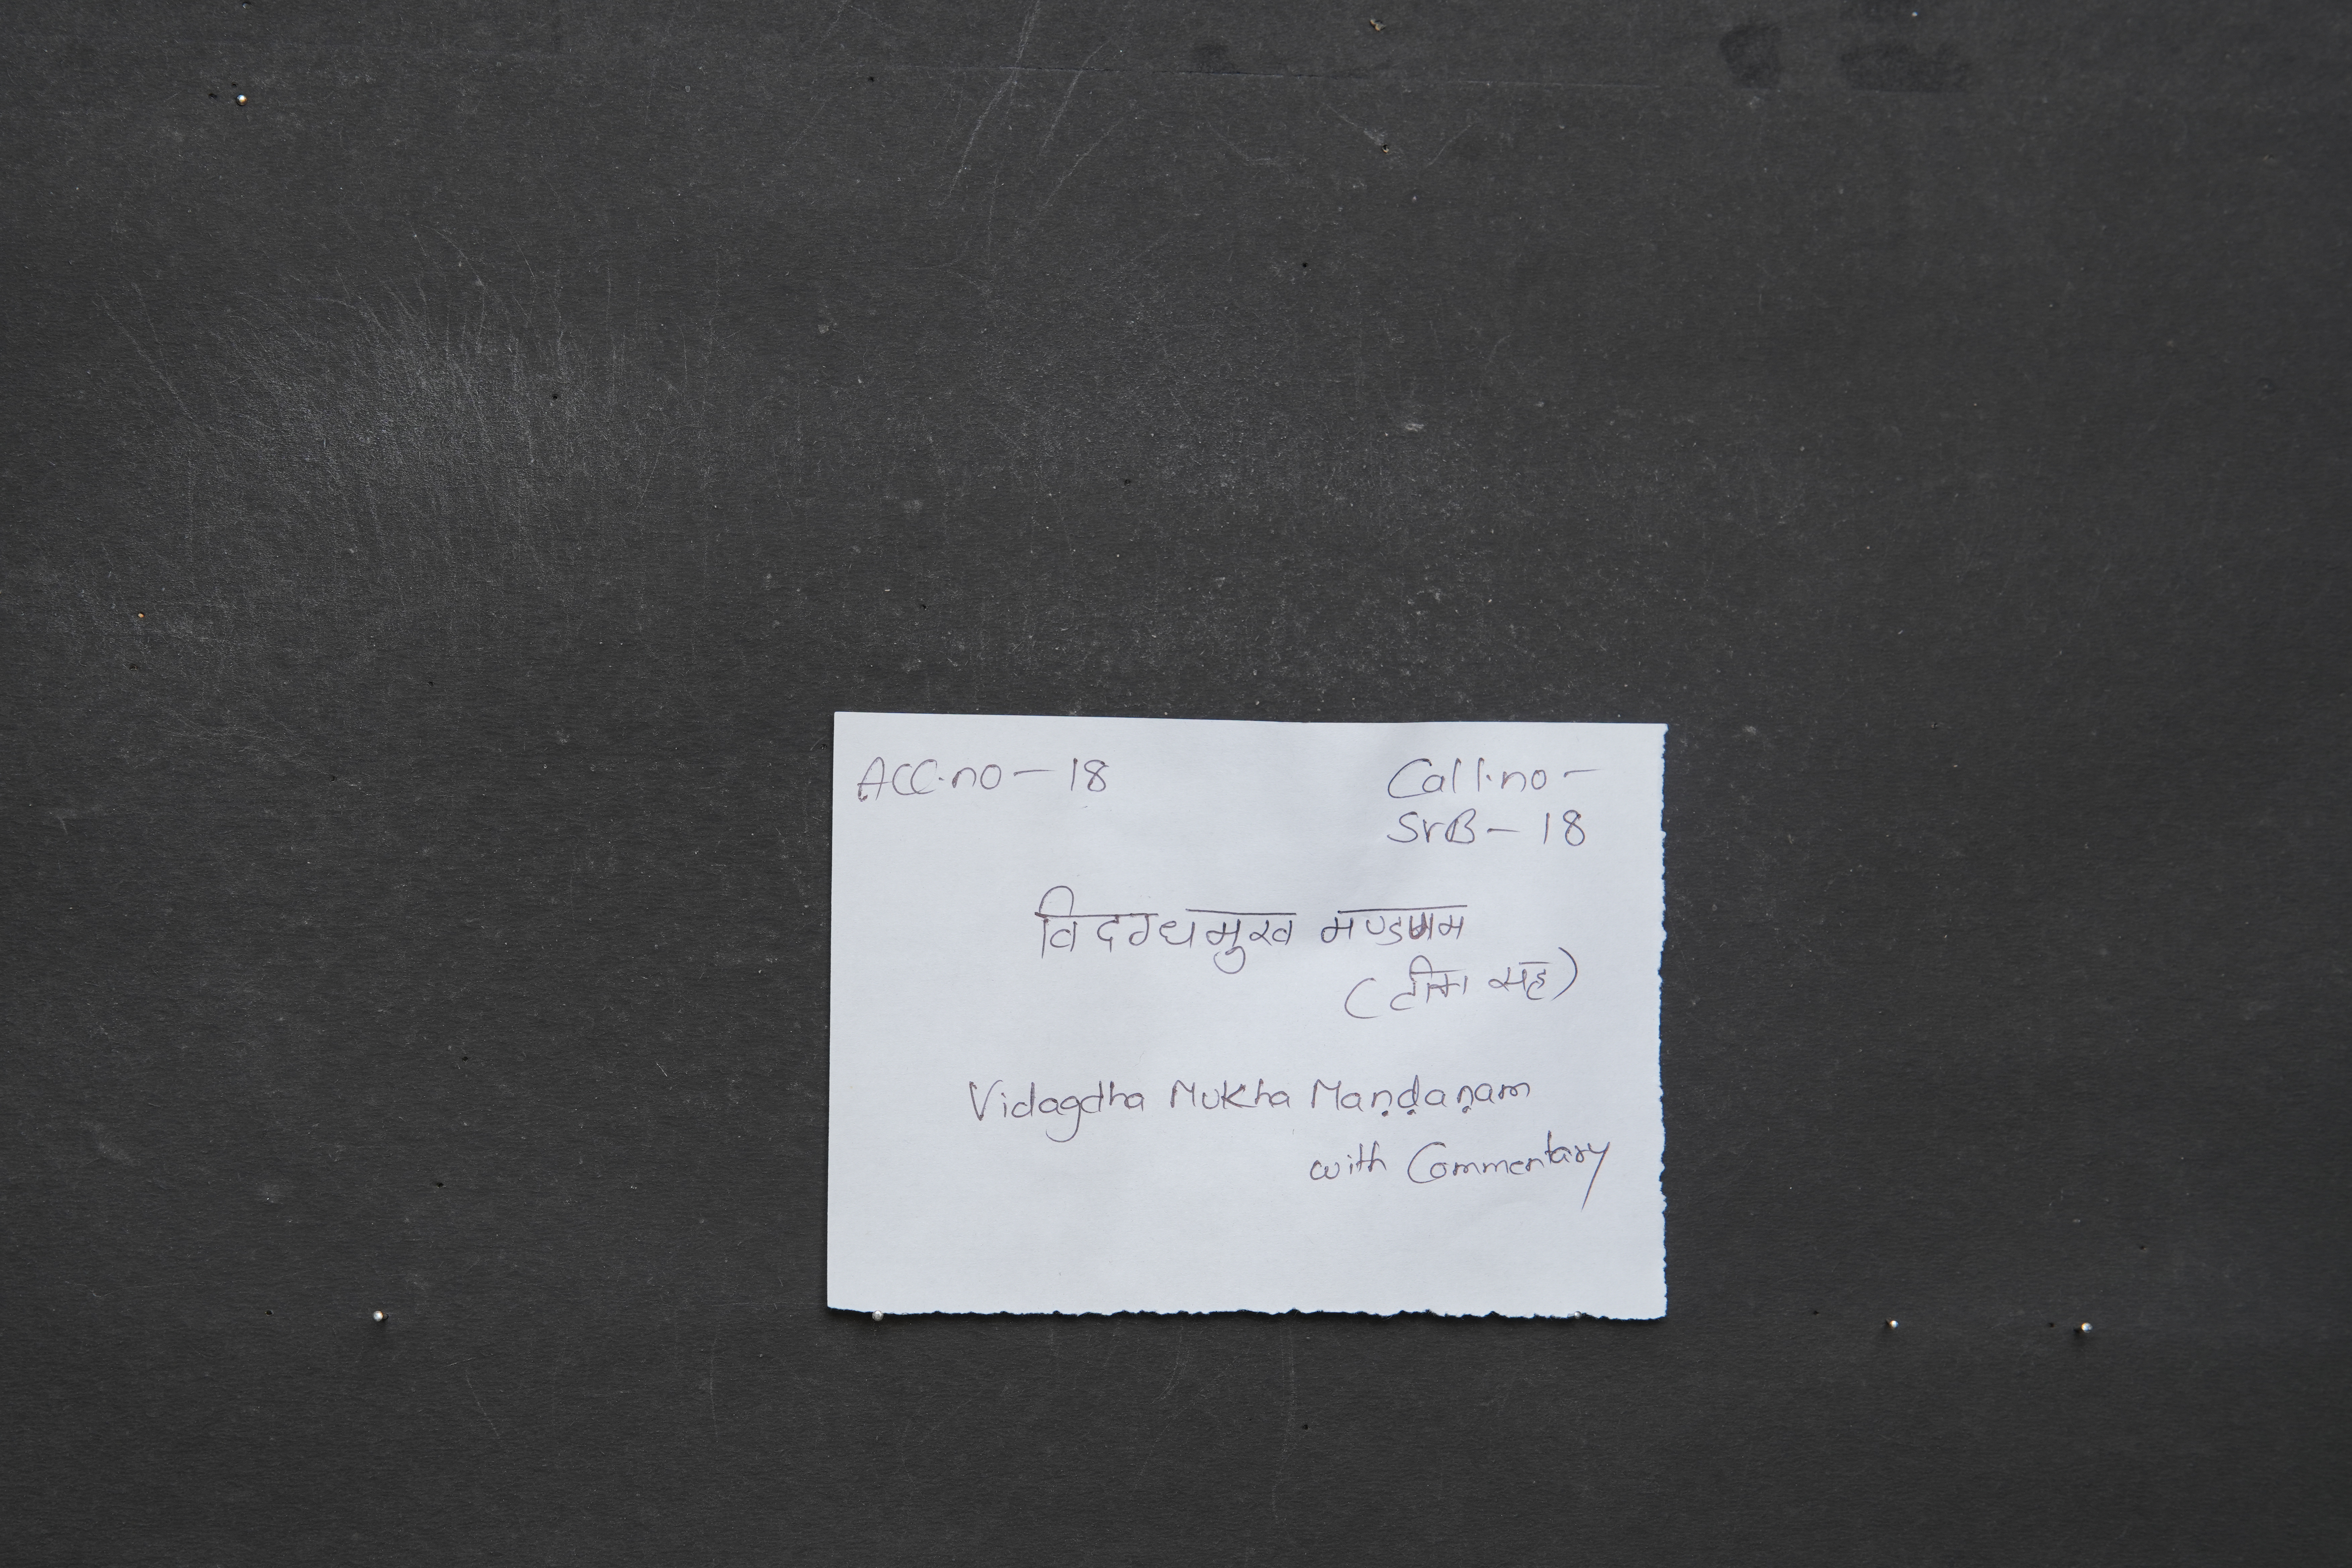 Acc.no - 18
Call.no -
SrB - 18
विदग्धमुख मण्डणम
(टीका सह)
Vidagdha Mukha Maṇḍaṇam
with Commentary